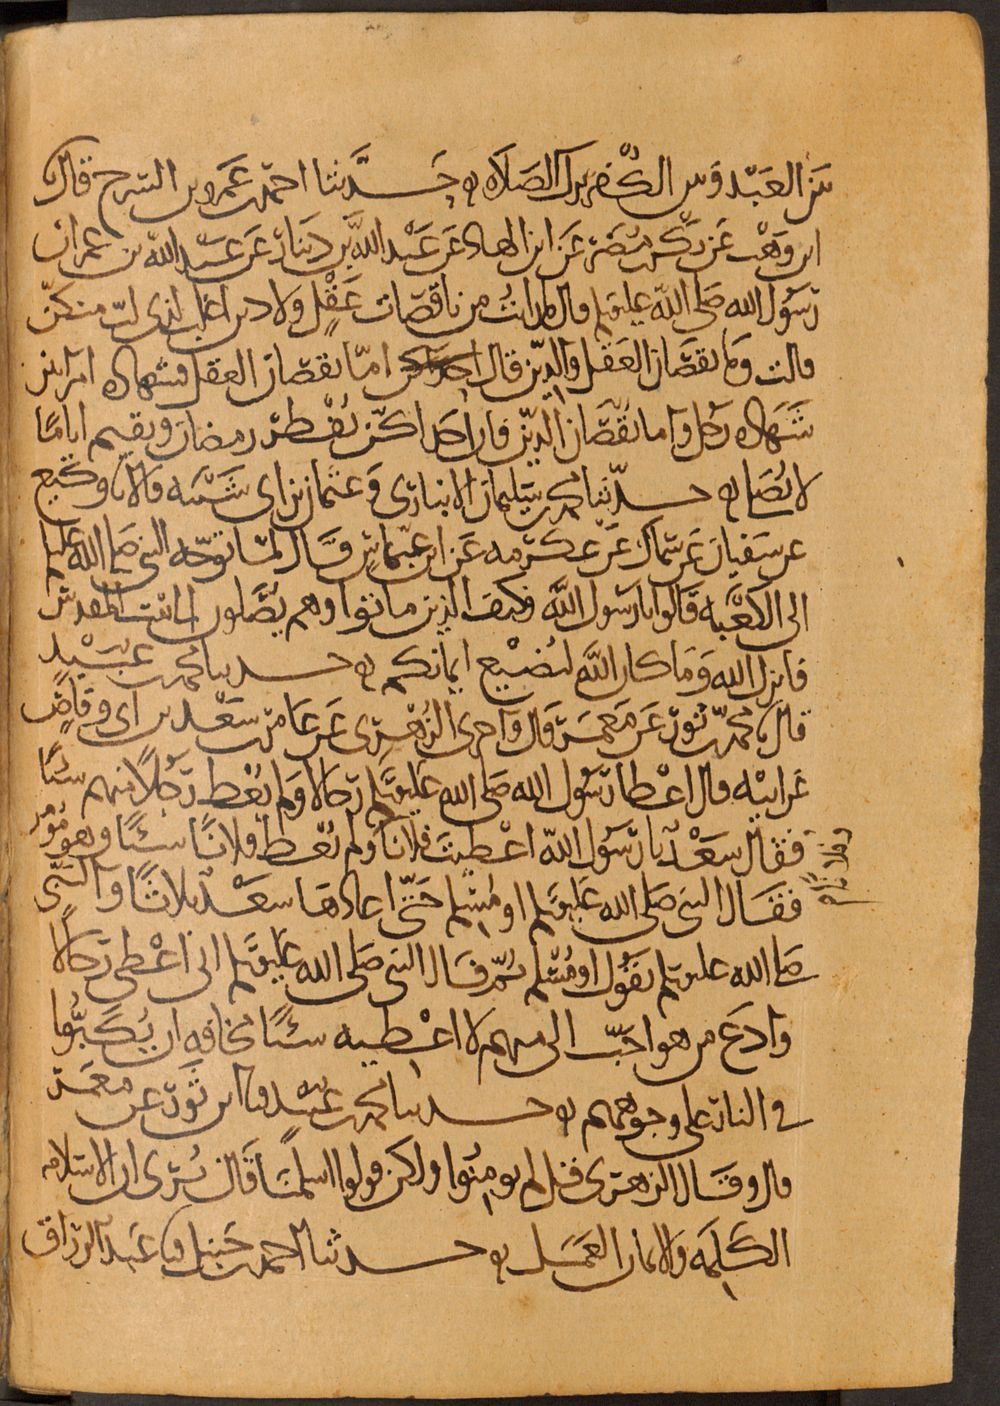 بين العبد وبين الكفر ترك الصلاه حدثنا احمد بن عمرو بن السرح قال
ابن وهب عن بكر بن مضر عن ابن الهاد عن عبد الله بن دينار عن عبد الله بن عمر ان
رسول الله صلى الله عليه وسلم قال ما رايت من ناقصات عقل ولا دين اغلب لذي لب منكن
قالت وما نقصان العقل والدين قال اما نقصان العقل فشهاده امراتين
شهاده رجل واما نقصان الدين فان احداكن تفطر رمضان وتقيم اياما
لا تصلي حدثنا محمد بن سليمان الانباري وعثمان بن ابي شيبه قالا نا وكيع
عن سفيان عن سماك عن عكرمه عن ابن عباس قال لما توجه النبي صلى الله عليه وسلم
الى الكعبه قالوا يا رسول الله فكيف الذين ماتوا وهم يصلون الى بيت المقدس
فانزل الله وما كان الله ليضيع ايمانكم حدثنا محمد بن عبيد
قال نا محمد بن ثور عن معمر قال واخبرني الزهري عن عامر بن سعد بن ابي وقاص
عن ابيه قال اعطا رسول الله صلى الله عليه وسلم رجالا ولم يعط رجلا منهم شيئا
فقال سعد يا رسول الله اعطيت فلانا ولم تعط فلانا شيئا وهو مؤمن
فقال النبي صلى الله عليه وسلم او مسلم حتى اعادها سعد ثلاثا والنبي
صلى الله عليه وسلم يقول او مسلم ثم قال النبي صلى الله عليه وسلم اني اعطي رجالا
وادع من هو احب الي منهم لا اعطيه شيئا مخافه ان يكبوا
في النار على وجوههم حدثنا محمد بن عبيد نا ابن ثور عن معمر
قال وقال الزهري قل لم تومنوا ولكن قولوا اسلمنا قال نرى ان الاسلام
الكلمه والايمان العمل حدثنا احمد بن حنبل نا عبد الرزاق